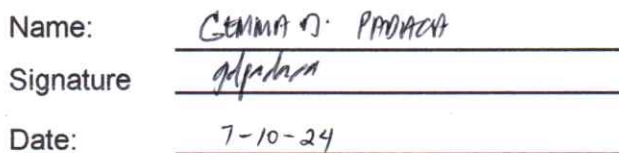 Name: GEMMA D. PADACA
Signature
Date: 7-10-24